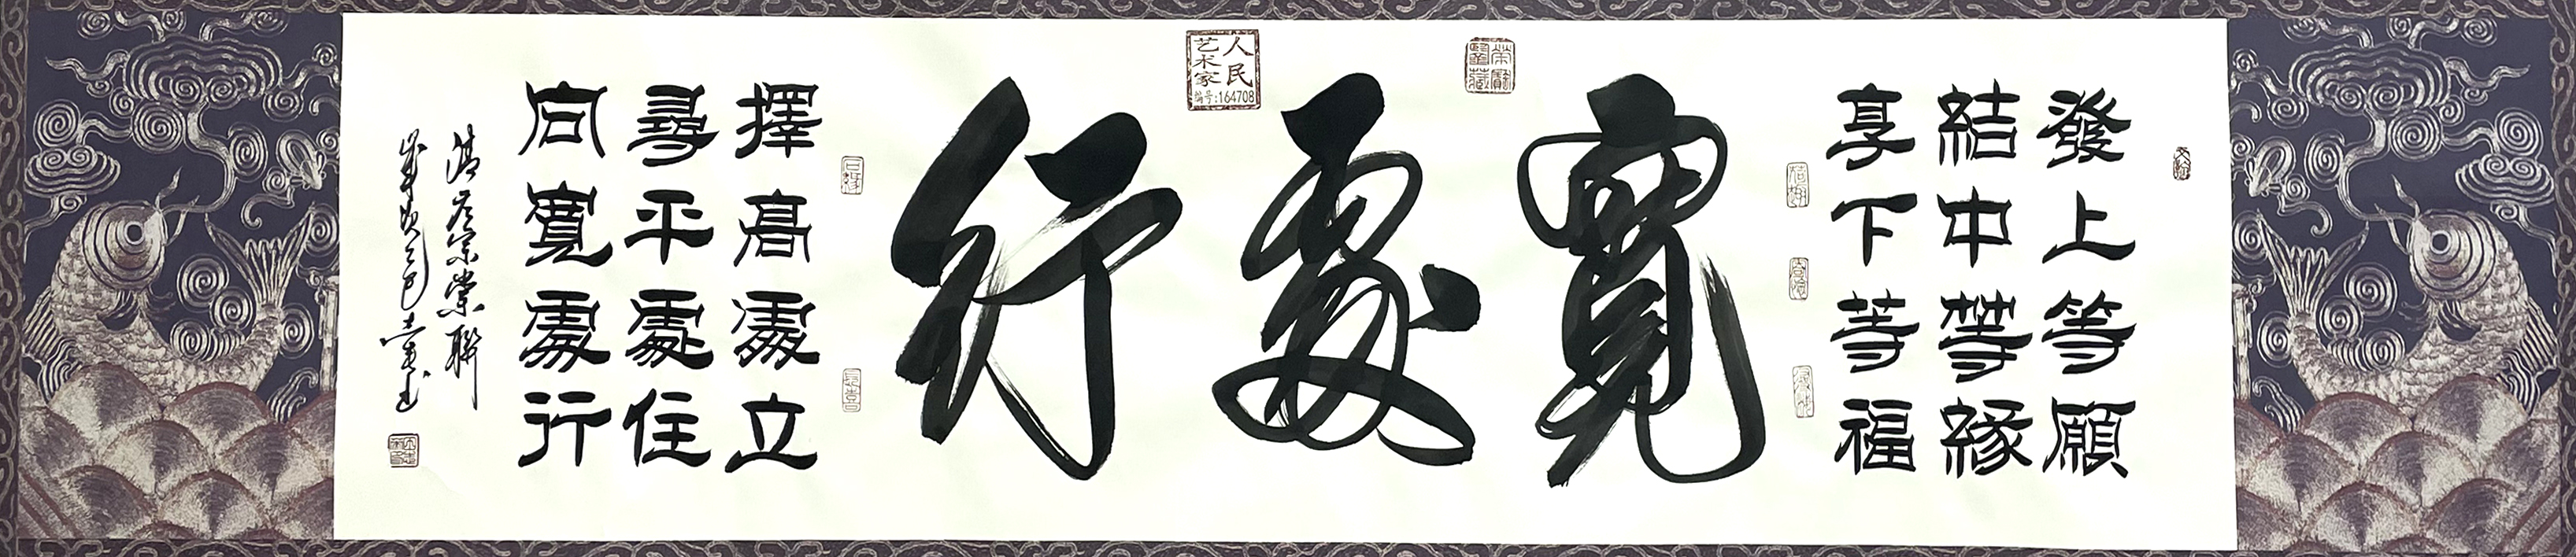 發上等願
結中等緣
享下等福
寬處行
擇高處立
尋平處住
向寬處行
清左宗棠聯
歲次乙巳
人民
艺术家
编号:164708